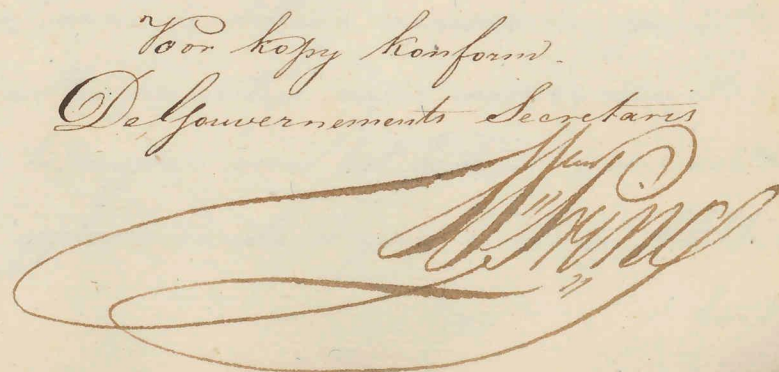 Voor kopy konform.
De Gouvernements Secretaris